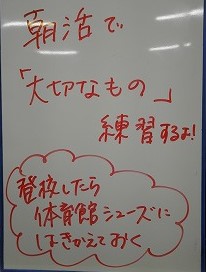 朝活で
「大切なもの」
練習するよ!
登校したら
体育館シューズに
はきかえておく